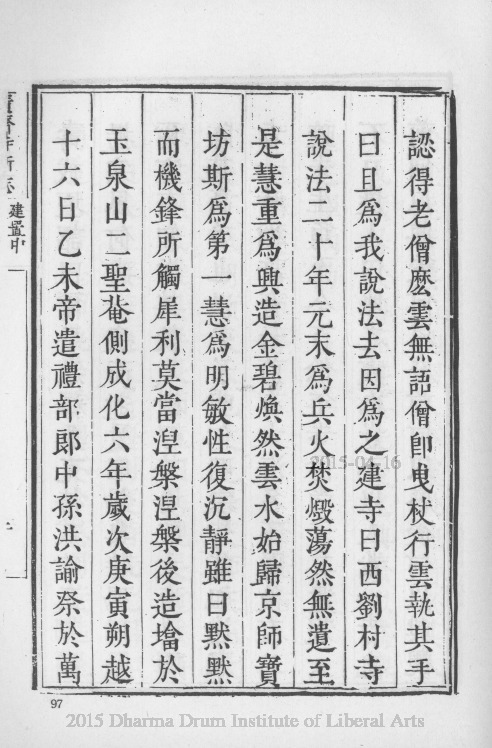 認得老僧麽雲無語僧卽曳杖行雲執其手
曰且爲我說法去因爲之建寺曰西劉村寺
說法二十年元末爲兵火焚燬蕩然無遺至
是慧重爲興造金碧煥然雲水始歸京師寶
坊斯爲第一慧爲明敏性復沉靜雖曰黙黙
而機鋒所觸犀利莫當湼槃湼槃後造墖於
玉泉山二聖菴側成化六年歲次庚寅朔越
十六日乙未帝遣禮部郞中孫洪諭祭於萬
建置中
97
2015-04-16
2015 Dharma Drum Institute of Liberal Arts